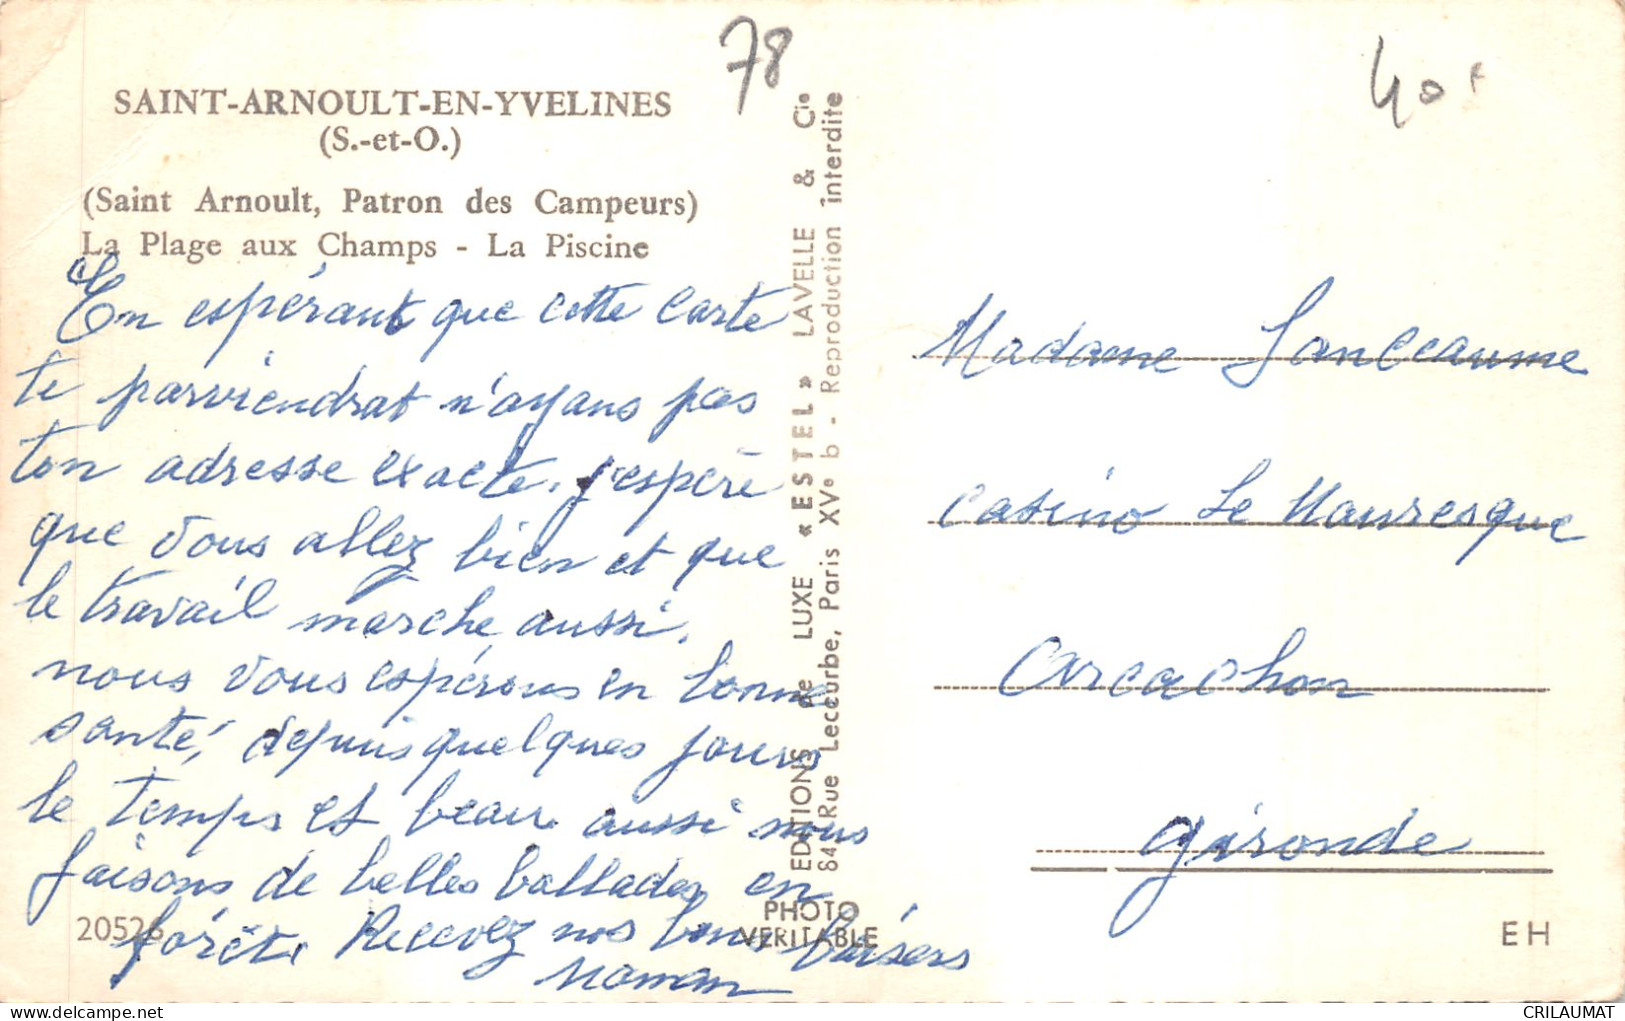 78
40 F
SAINT-ARNOULT-EN-YVELINES
(S.-et-O.)
(Saint Arnoult, Patron des Campeurs)
La Plage aux Champs - La Piscine
En espérant que cette carte
te parviendrat n'ayans pas
ton adresse exacte. j'espère
que vous allez bien et que
le travail marche aussi.
nous vous espérons en bonne
santé, depuis quelques jours
le temps est beau aussi nous
faisons de belles ballades en
forêt. Recevez nos bons baisers
Maman
20526
EDITIONS de LUXE « ESTEL » LAVELLE & Cie
84, Rue Lecourbe, Paris XVe b - Reproduction interdite
PHOTO
VERITABLE
Madame
Casino Le Mauresque
Arcachon
Gironde
EH
CRILAUMAT